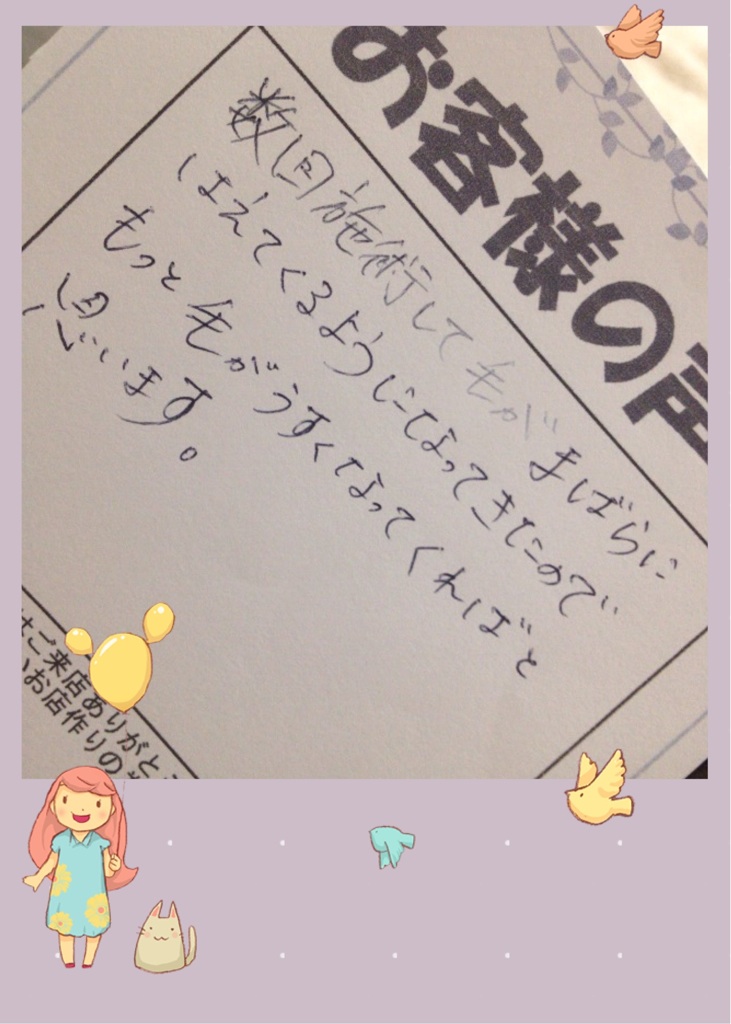 お客様の声
数回施術して毛がまばらに
はえてくるようになってきたので
もっと毛がうすくなってくれればと
思います。
はご来店ありがとう
いお店作りの